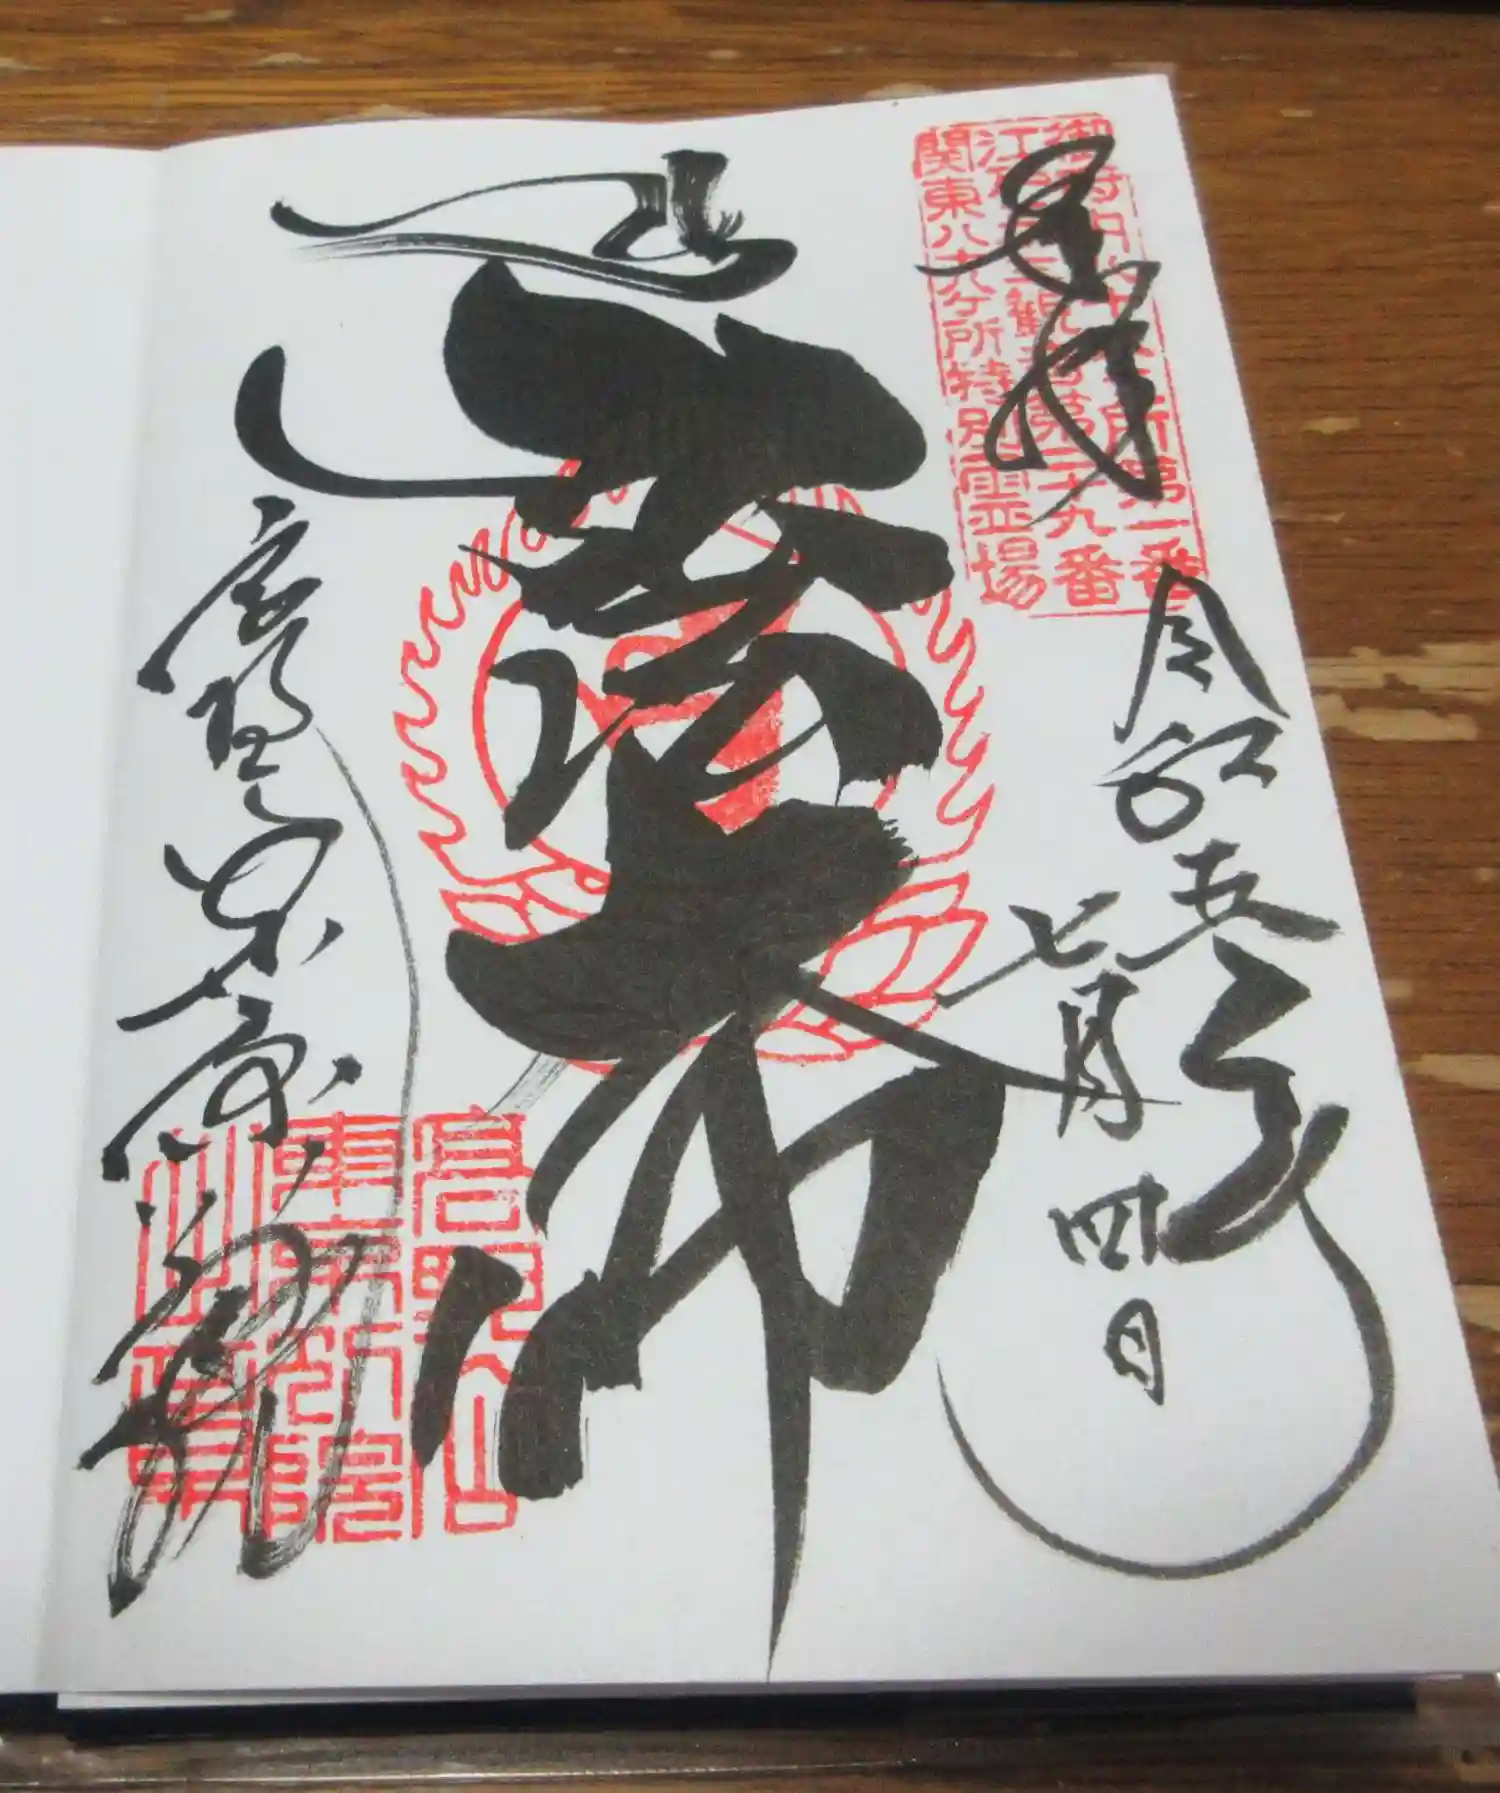 奉拝
御府内八十八ヶ所第一番
江戸三十三観音第二十九番
関東八十八ヶ所特別霊場
令和五年
七月四日
弘法大師
高野山
東京別院
高野山
東京別院